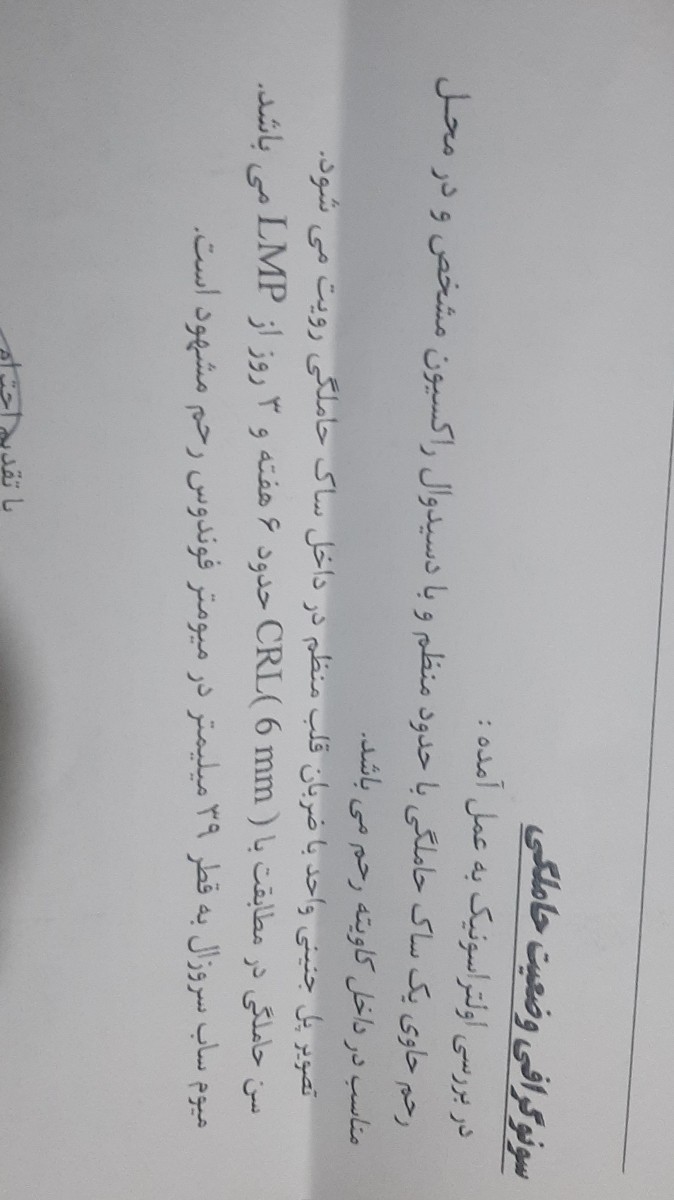 سونوگرافی وضعیت حاملگی
در بررسی اولتراسونیک به عمل آمده :
رحم حاوی یک ساک حاملگی با حدود منظم و با دسیدوال راکسیون مشخص و در محل
مناسب در داخل کاویته رحم می باشد.
تصویر پل جنینی واحد با ضربان قلب منظم در داخل ساک حاملگی رویت می شود.
سن حاملگی در مطابقت با CRL( 6 mm ) حدود ۶ هفته و ۳ روز از LMP می باشد.
میوم ساب سروزال به قطر ۳۹ میلیمتر در میومتر فوندوس رحم مشهود است.
با تقدیم احترام